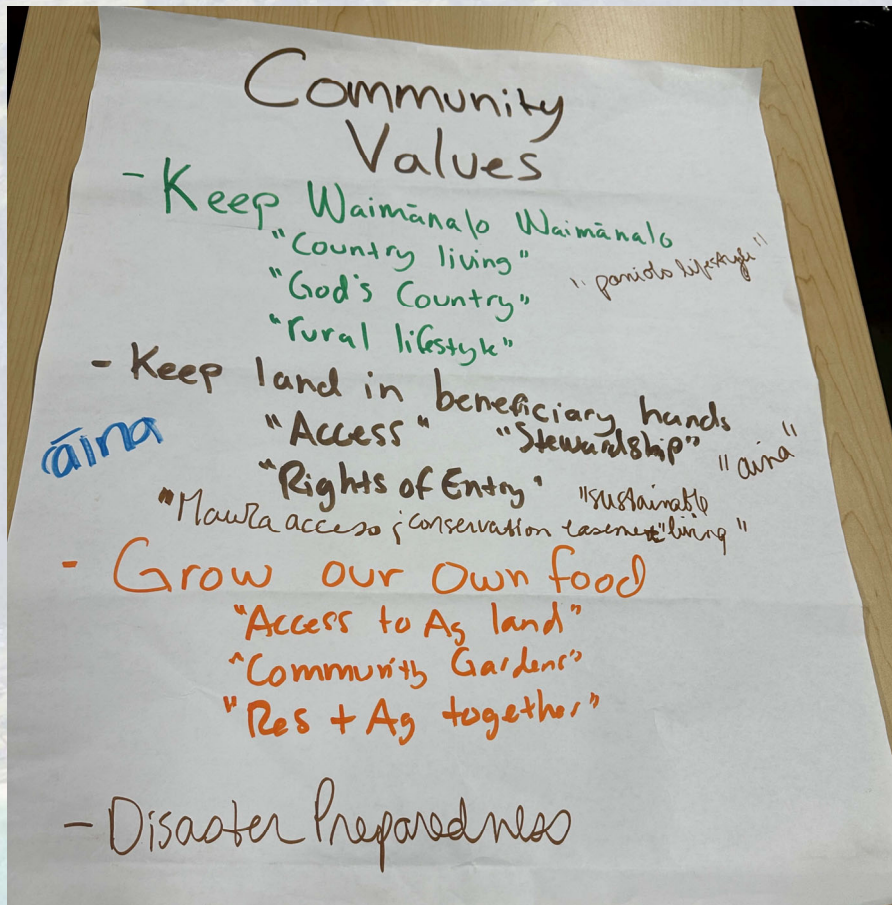 Community
Values
- Keep Waimānalo Waimānalo
"Country living"
"paniolo lifestyle"
"God's Country"
"rural lifestyle"
- Keep land in beneficiary hands
āina
"Access" "Stewardship"
"aina"
"Rights of Entry"
"sustainable
living"
"Mauka access ; conservation easement"
- Grow our own food
"Access to Ag land"
"Community Gardens"
"Res + Ag together"
- Disaster Preparedness